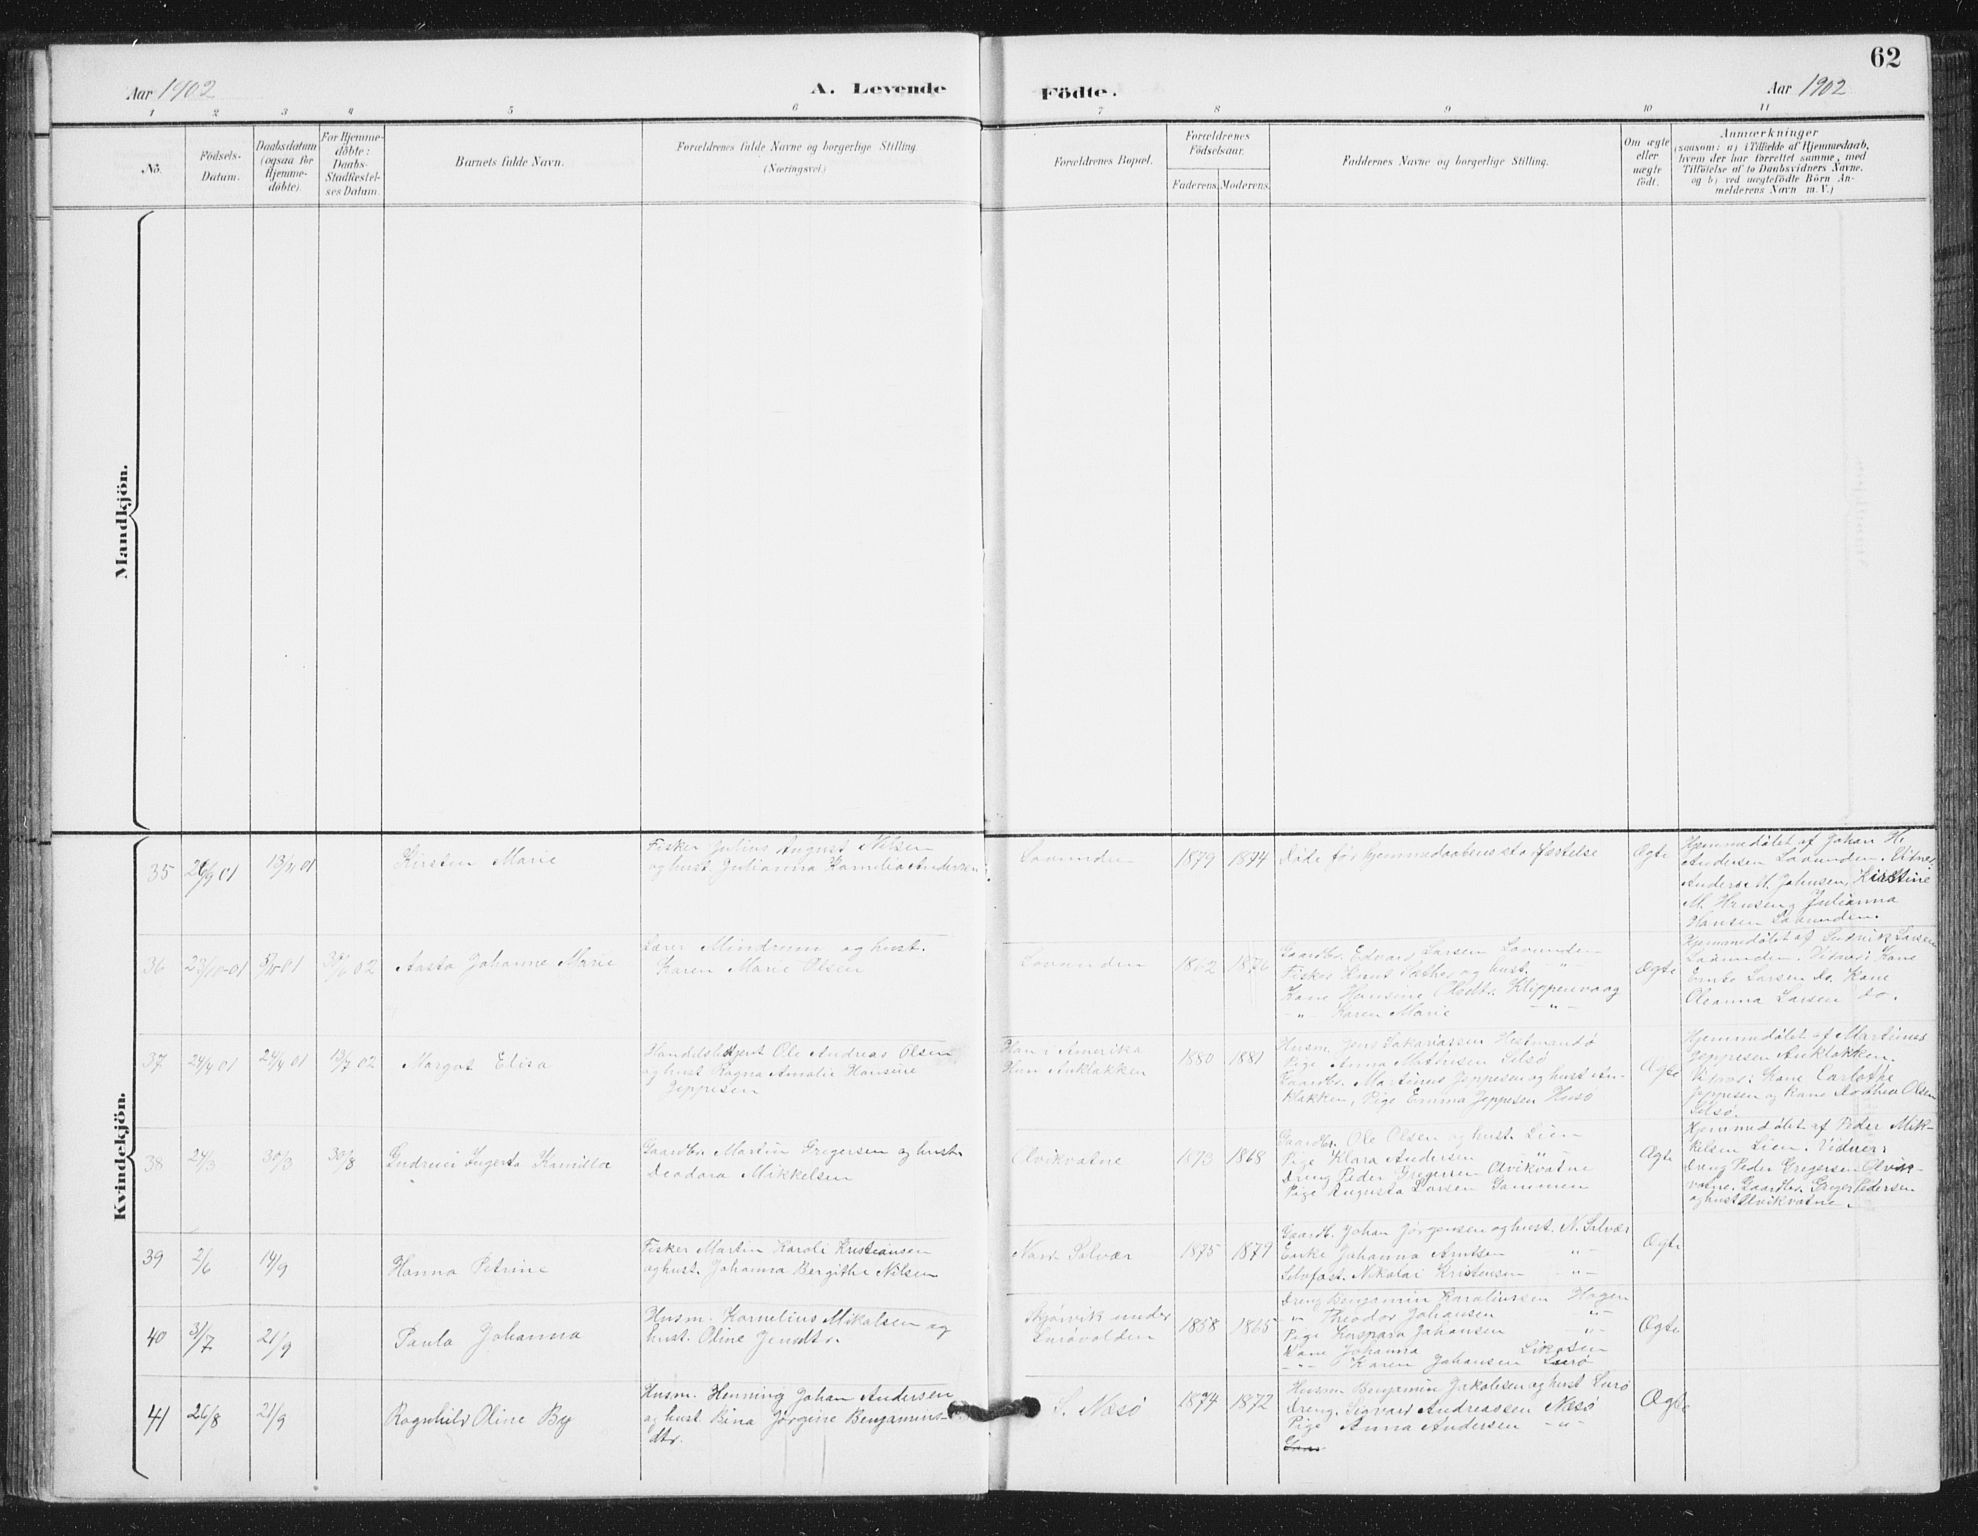 62
Aar 1902
A. Levende Födte.
Aar 1902
1 2 3 4 5 6 7 8 9 10 11
No.
Födsels-
Datum.
Daabsdatum
(ogsaa for
Hjemme-
döbte).
For Hjemme-
döbte:
Daabs-
Stadfæstel-
ses Datum.
Barnets fulde Navn.
Forældrenes fulde Navne og borgerlige Stilling
(Næringsvei)
Forældrenes Bopæl.
Forældrenes
Födselsaar.
Faderens. Moderens.
Faddernes Navne og borgerlige Stilling.
Om ægte
eller
uægte
födt.
Anmærkninger
(saasom: a) i Tilfælde af Hjemmedaab,
hvem der har forrettet samme, med
Tilföielse af to Daabsvidners Navne.
og b) ved uægtefödte Börn An-
melderens Navn m. V.)
Mandkjön.
Kvindekjön.
35
26/9 01
13/11 01
Kirsten Marie
Fisker Julius August Nilsen
og hust. Julianna Kamilia Andersen
Lovunden
1879
1874
Døde før hjemmedaabens stadfæstelse
Ægte
Hjemmedøbt af Johan H.
Andersen Lovunden. Vitner:
Anders M. Johnsen, Kirstine
M. Hansen, Julianna
Hansen Lovunden.
36
Aasta Johanne Marie
Lærer Mindrum og hust.
Karen Marie Olsen
Lovunden
1876
Gaardbr. Edvard Larsen Lovunden
Fisker Knut og hust. -"-
Kane Hansine Olsdtr. Klippenvaag
-"- Karen Marie -"-
Ægte
Hjemmedøbt af Larsen
Lovunden. Vitner: Kane
Larsen Do. Kane
Oleanna Larsen Do.
37
24/4 01
24/4 01
13/7 02
Margot Elisa
Ole Andreas Olsen
og hust Ragna Amalie Hansine
Jeppesen
Han i Amerika
Hun Anklakken
1880
1881
Husm. Jens Sakariassen Hestmandø
Pige Anna Mathisen Selsø
Gaardbr. Martinus Jeppesen og hust An-
klakken, Pige Emma Jeppesen Husø
Ægte
Hjemmedøbt af Martinus
Jeppesen Anklakken.
Vitner: Kane Carlothe
Jeppesen og Kane Dorthea Olsen
Selsø.
38
24/3
30/3
30/8
Ingerta Kamilla
Gaardbr. Martin Gregersen og hust.
Deodora Mikkelsen
Olvikvatne
1873
1868
Gaardbr. Ole Olsen og hust. Lien
Pige Klara Andersen "
Dreng Peder Gregersen Olvikvatne
Pige Augusta Larsen Gammen
Ægte
Hjemmedøbt af Peder Mik-
kelsen Lien. Vidner:
Dreng Peder Gregersen Olvik-
vatne. Gaardbr. Greger Pedersen
og hust Olvikvatne.
39
2/6
14/9
Hanna Petrine
Fisker Martin Karoli Kristiansen
og hust. Johanna Bergithe Nilsen
Nord Solvær
1875
1879
Gaardb. Johan Jørgensen og hust. N. Solvær
Enke Johanna Arntsen -"-
Selvfost. Nikolai Kristensen -"-
Ægte
40
31/7
21/9
Paula Johanna
Husm. Kornelius Mikalsen og
hust. Oline Jensdtr.
under
Lurøvolden
1858
1865
Dreng Benjamin Karoliussen Hagen
" Theodor Johansen -"-
Pige Kaspara Johansen -"-
Kane Johanna
-"- Karen Johansen Lurø
Ægte
41
26/8
21/9
Ragnhild Oline By
Husm. Henning Johan Andersen
og hust. Bina Jørgine Benjamins-
dtr.
S. Nesø
1874
1872
Husm Benjamin Jakobsen og hust Lurø
Dreng. Sigvard Andreassen Nesø
Pige Anna Andersen -"-
Ægte